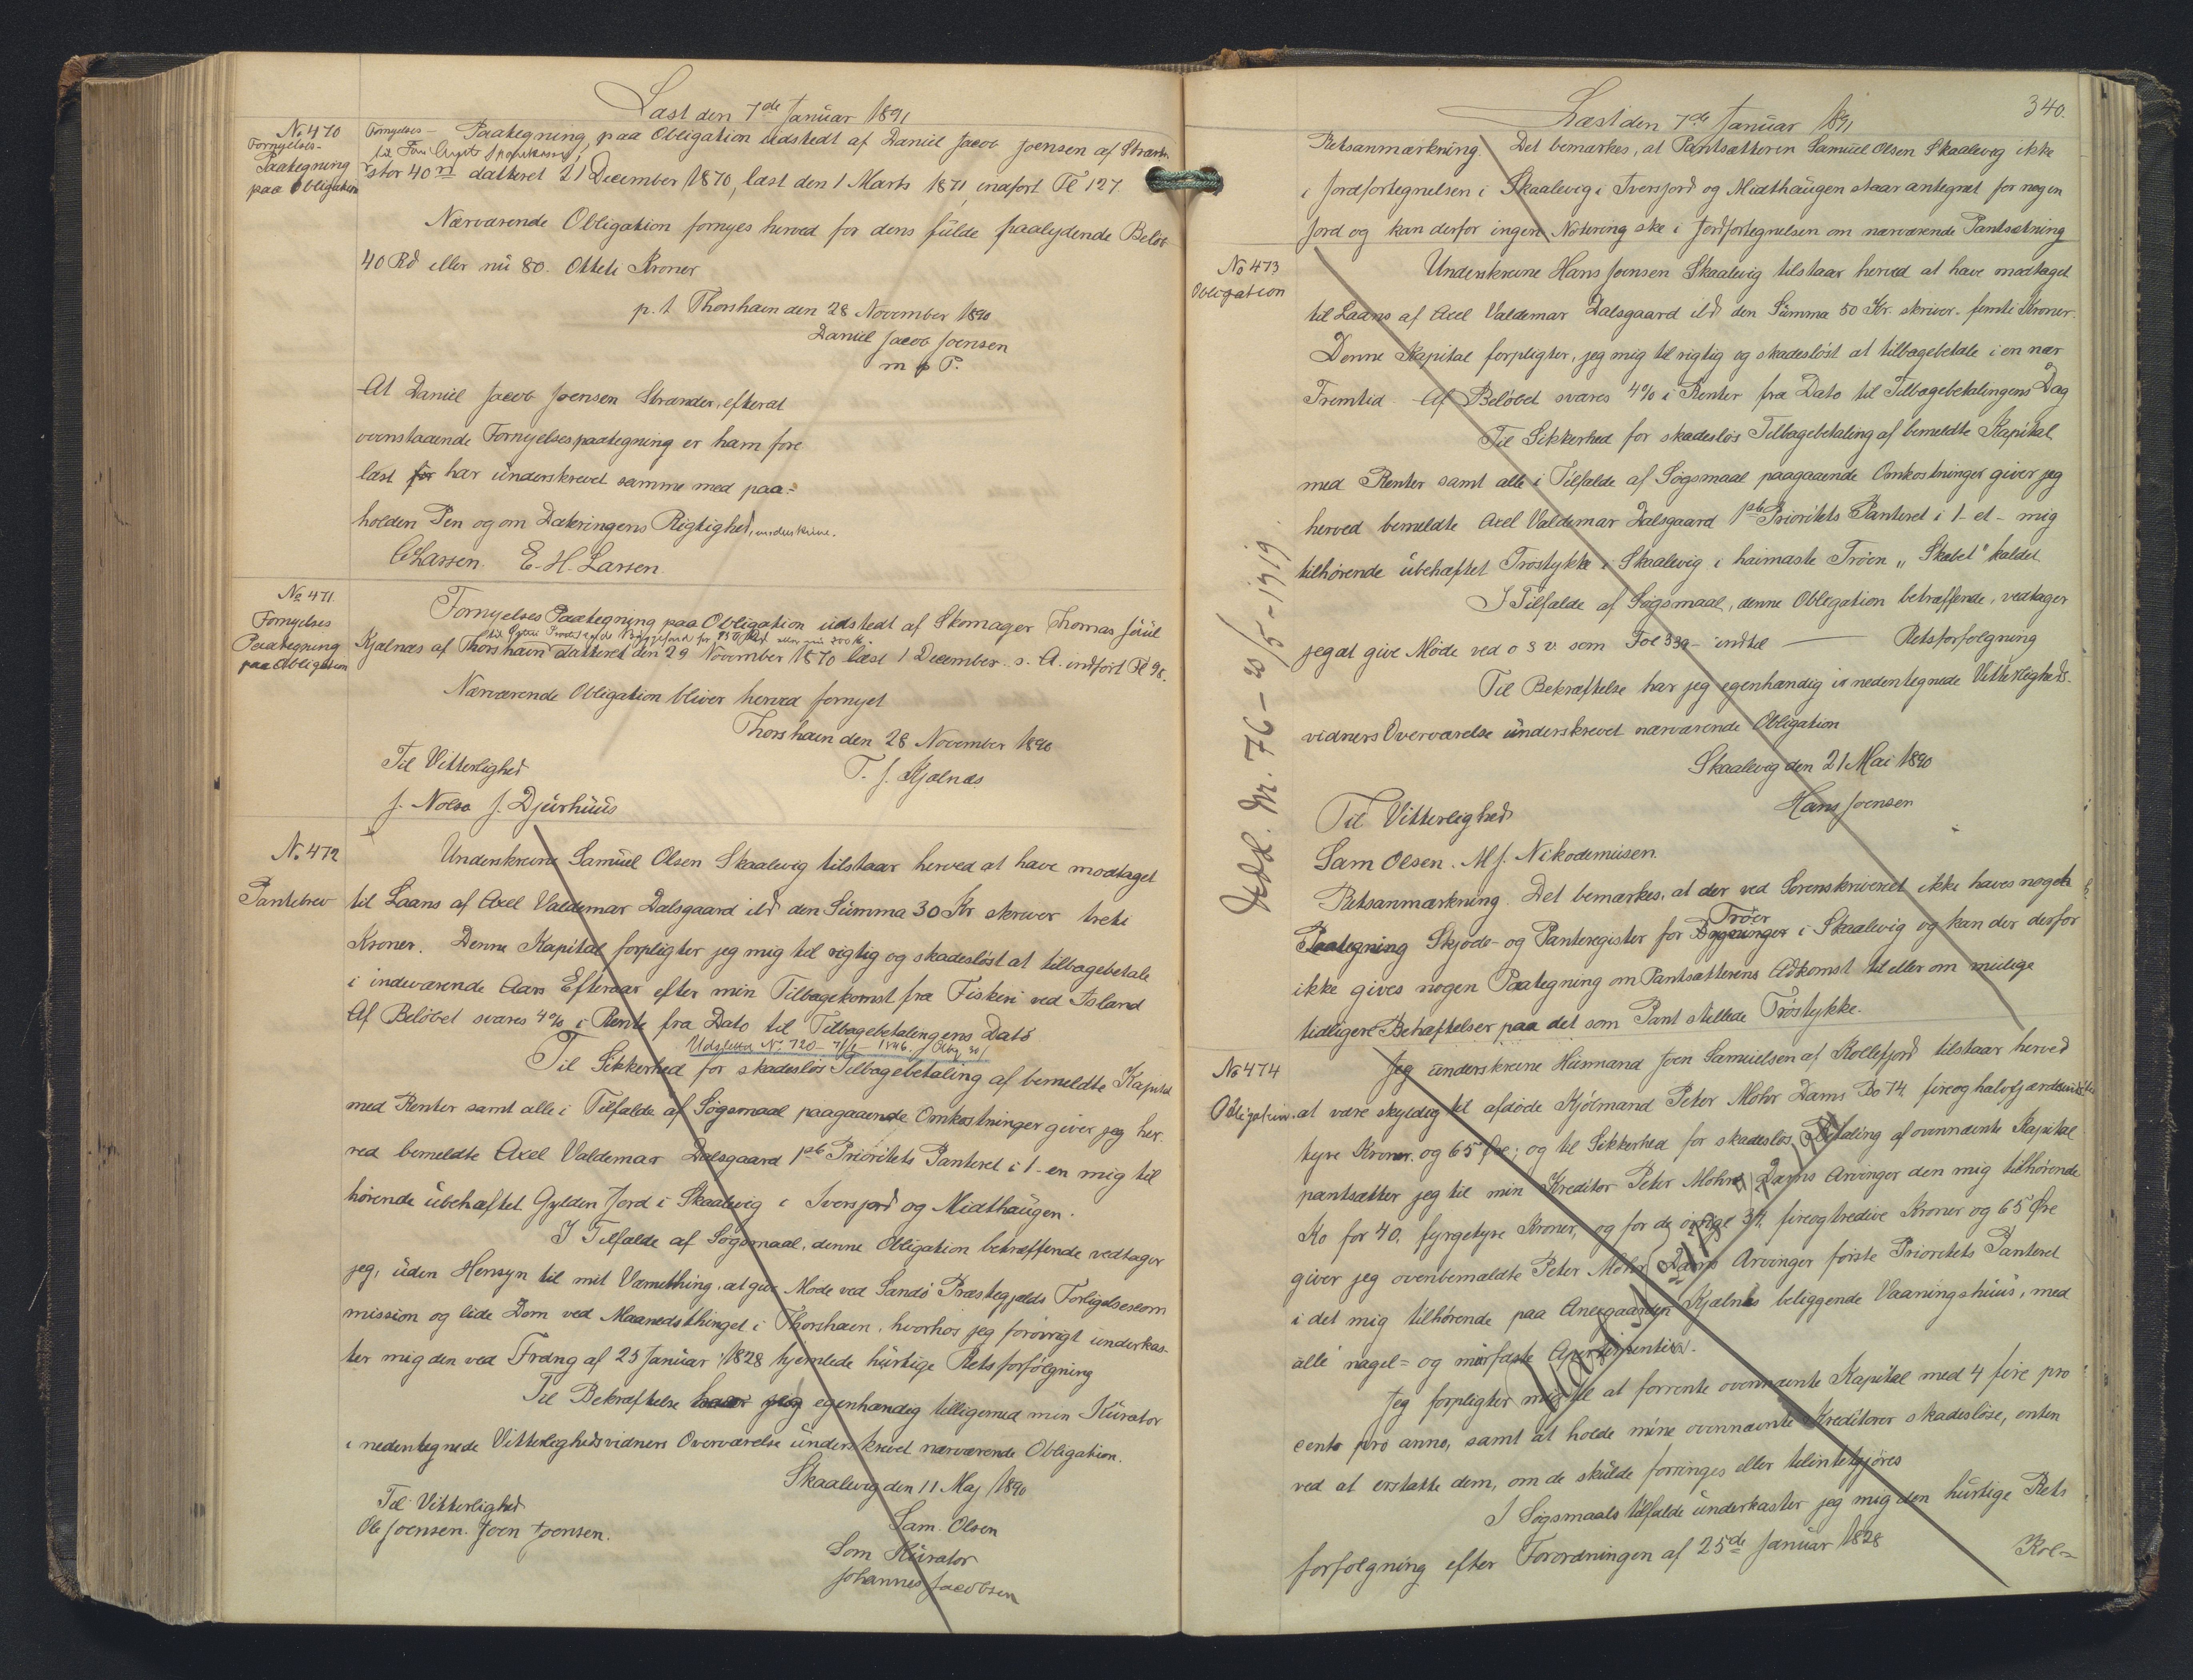 Læst den 7de Januar 1891
No 470
Fornyelses-
Paategning
paa Obligation
Fornyelses- Paategning, paa Obligation udstedt af Daniel Jacob Joensen af Strænder
til Færø Amts Sparekasse,
stor 40 rd datteret 21 December 1870, læst den 1 Marts 1871, indført Fol 127.
Nærværende Obligation fornyes herved for dens fulde paalydende Beløb
40 Rd eller nu 80. Otteti Kroner
p. t. Thorshavn den 28 November 1890
Daniel Jacob Joensen
m p P.
At Daniel Jacob Joensen Strænder, efterat
ovenstaaende Fornyelsespaategning er ham fore
læst for har underskrevet samme med paa-
holden Pen og om Dateringens Rigtighed, underskrive.
C Larsen. E. H. Larsen
No 471.
Fornyelses
Paategning
paa Obligation
Fornyelses Paategning paa Obligation udstedt af Skomager Thomas Juul
Kjølnæs af Thorshavn datteret den 29 November 1870 læst 1 December s. A. indført Fol 98.
Nærværende Obligation bliver herved fornyet
Thorshavn den 28 November 1890
Til Vitterlighed
T. J. Kjølnæs
J. Nolsø J. Djurhuus
No 472
Pantebrev
Underskrevne Samuel Olsen Skaalevig tilstaar herved at have modtaget
til Laans af Axel Valdemar Dalsgaard ibd den Summa 30 Kr skriver treti
Kroner. Denne Kapital forpligter jeg mig til rigtig og skadesløst at tilbagebetale
i indeværende Aars Efteraar efter min Tilbagekomst fra Fiskeri ved Island
Af Beløbet svares 4% i Rente fra Dato til Tilbagebetalingens Dato
Udslettet No. 120
Til Sikkerhed for skadesløs Tilbagebetaling af bemeldte Kapital
med Renter samt alle i Tilfælde af Søgsmaal paagaaende Omkostninger giver jeg her-
ved bemeldte Axel Valdemar Dalsgaard 1ste Prioritets Panteret i 1- en mig til
hørende ubehæftet Gylden Jord i Skaalevig i Iversjord og Midthaugen.
I Tilfælde af Søgsmaal, denne Obligation betræffende vedtager
jeg, uden Hensyn til mit Værnething, at give Møde ved Sandø Præstegjælds Forligelsescom
mission og lide Dom ved Maanedsthinget i Thorshavn, hvorhos jeg forøvrigt underkas-
ter mig den ved Frdng af 25 Januar 1828 hjemlede hurtige Retsforfølgning
Til Bekræftelse haver jeg egenhændig tilligemed min Kurator
i nedentegnede Vitterlighedsvidners Overværelse underskrevet nærværende Obligation.
Skaalevig den 11 Maj 1890
Til Vitterlighed
Ole Joensen. Joen Joensen.
Sam. Olsen
Som Kurator
Johannes Jacobsen
340.
Læst den 7de Januar 1891
Retsanmærkning. Det bemærkes, at Pantsætteren Samuel Olsen Skaalevig ikke
i Jordfortegnelsen i Skaalevig i Iversjord og Midthaugen staar antegnet for nogen
Jord og kan derfor ingen Notering ske i Jordfortegnelsen om nærværende Pantsætning
No 473
Obligation
Underskrevne Hans Joensen Skaalevig tilstaar herved at have modtaget
til Laans af Axel Valdemar Dalsgaard ibd den Summa 50 Kr. skriver femti Kroner.
Denne Kapital forpligter, jeg mig til rigtig og skadesløst at tilbagebetale i en nær
Fremtid. Af Beløbet svares 4% i Renter fra Dato til Tilbagebetalingens Dag
Til Sikkerhed for skadesløs Tilbagebetaling af bemeldte Kapital
med Renter samt alle i Tilfælde af Søgsmaal paagaaende Omkostninger giver jeg
herved bemeldte Axel Valdemar Dalsgaard 1ste Prioritets Panteret i 1- et- mig
tilhørende ubehæftet Trøstykke i Skaalevig i haimaste Trøen „Skabet" kaldet
I Tilfælde af Søgsmaal, denne Obligation betræffende, vedtager
jeg at give Møde ved o s v. som Fol 339 - indtil — Retsforfølgning
Til Bekræftelse har jeg egenhændig i nedentegnede Vitterligheds-
vidners Overværelse underskrevet nærværende Obligation
Skaalevig den 21 Mai 1890
Til Vitterlighed
Hans Joensen
Sam Olsen. M J. Nikodemusen.
Udsl. Nr. 76 - 20/5 - 1919.
Retsanmærkning. Det bemærkes, at der ved Sorenskriveriet ikke haves noget
Paategning Skjøde- og Panteregister for Bygninger Trøer i Skaalevig og kan der derfor
ikke gives nogen Paategning om Pantsætterens Adkomst til eller om mulige
tidligere Behæftelser paa det som Pant stillede Trøstykke.
No 474
Obligation.
Jeg underskrevne Husmand Joen Samuelsen af Kollefjord tilstaar herved
at være skyldig til afdøde Kjøbmand Peter Mohr Dams Bo 74, fireoghalvfjerdsinds
tyve Kroner og 65 Øre; og til Sikkerhed for skadesløs Betaling af ovennævnte Kapital
pantsætter jeg til min Kreditor Peter Mohr Dams Arvinger den mig tilhørende
Ko for 40, fyrgetyve Kroner, og for de øvrige 34, fireogtredive Kroner og 65 Øre
giver jeg ovenbemældte Peter Mohr Dams Arvinger første Prioritets Panteret
i det mig tilhørende paa Kjælnæs beliggende Vaaningshuus, med
alle nagel= og muurfaste Apertinentier.
Jeg forpligter mig til at forrente ovennævnte Kapital med 4 fire pro
cento pro anno, samt at holde mine ovennævnte Kreditorer skadesløse, enten
ved at erstatte dem, om de skulde forringes eller tilintetgjøres
I Søgsmaals tilfælde underkaster jeg mig den hurtige Rets
forfølgning efter Forordningen af 25de Januar 1828
Kol=